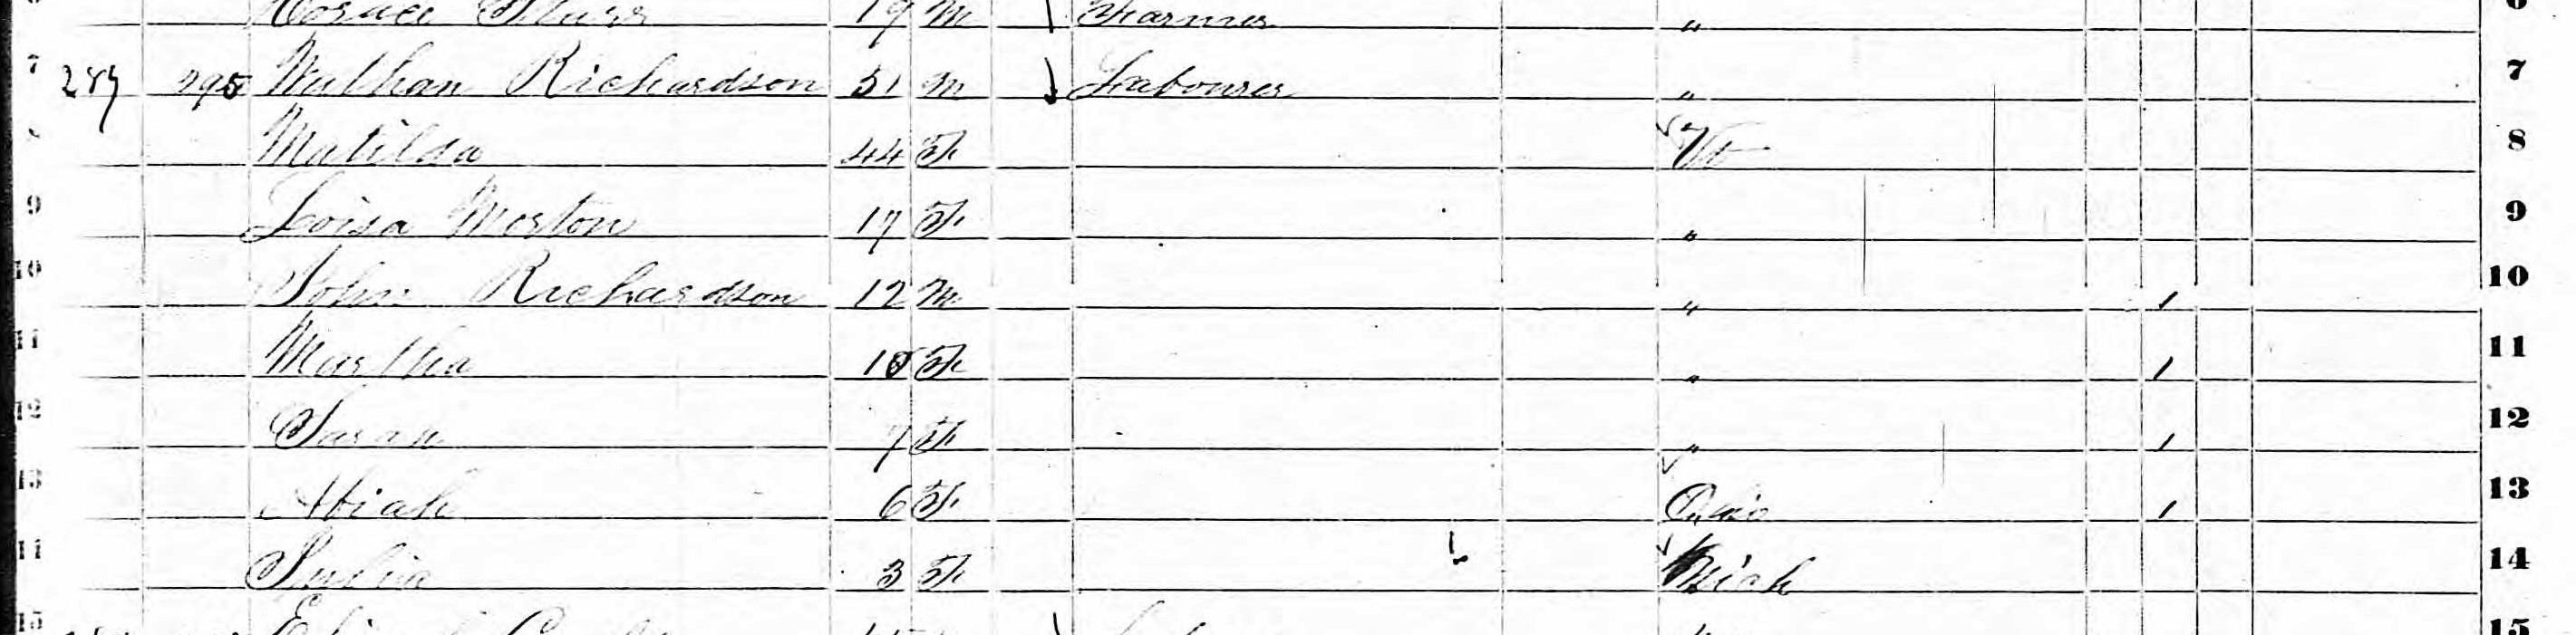 19 M Farmer " 6
7 289 295 Nathan Richardson 51 M Labourer " 7
8 Matilda 44 F Vt 8
9 Loisa Morton 17 F " 9
10 John Richardson 12 M " 1 10
11 Martha 10 F " 1 11
12 Sarah 7 F " 1 12
13 Abiah 6 F Ohio 1 13
14 Julia 3 F Mich 14
15 15